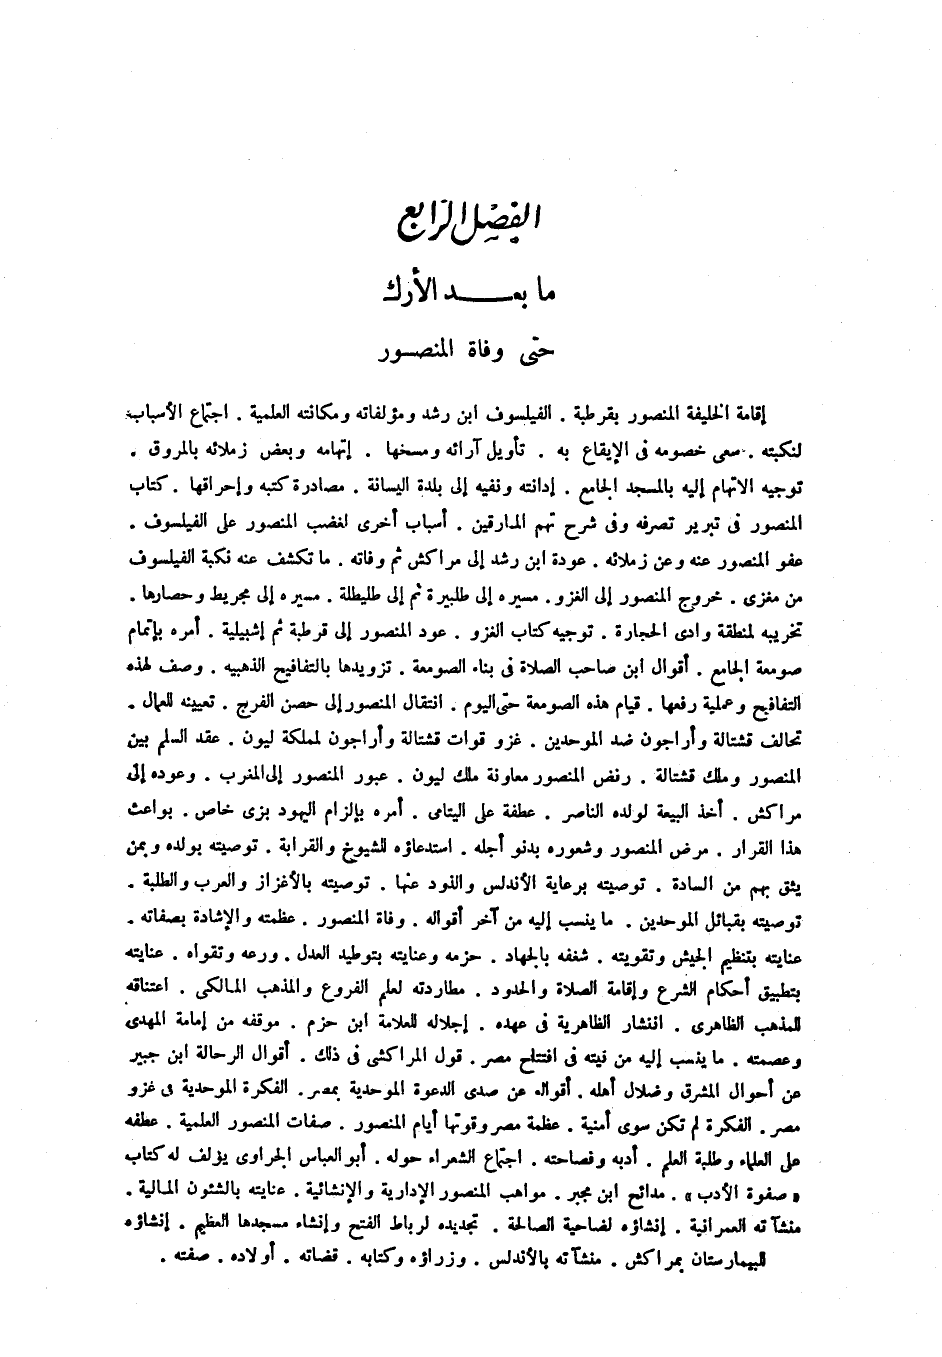 الفصل الرابع
ما بعد الأرك
حتى وفاة المنصور
إقامة الخليفة المنصور بقرطبة . الفيلسوف ابن رشد ومؤلفاته ومكانته العلمية . اجتماع الأسباب
لنكبته . سعى خصومه فى الإيقاع به . تأويل آرائه ومسخها . إتهامه وبعض زملائه بالمروق .
توجيه الاتهام إليه بالمسجد الجامع . إدانته ونفيه إلى بلدة اليسانة . مصادرة كتبه وإحراقها . كتاب
المنصور فى تبرير تصرفه وفى شرح تهم المارقين . أسباب أخرى لغضب المنصور على الفيلسوف .
عفو المنصور عنه وعن زملائه . عودة ابن رشد إلى مراكش ثم وفاته . ما تكشف عنه نكبة الفيلسوف
من مغزى . خروج المنصور إلى الغزو . مسيره إلى طلبيرة ثم إلى طليطلة . مسيره إلى مجريط وحصارها .
تخريبه لمنطقة وادى الحجارة . توجيه كتاب الغزو . عود المنصور إلى قرطبة ثم إشبيلية . أمره بإتمام
صومعة الجامع . أقوال ابن صاحب الصلاة فى بناء الصومعة . تزويدها بالتفافيح الذهبيه . وصف لهذه
التفافيح وعملية رفعها . قيام هذه الصومعة حتى اليوم . انتقال المنصور إلى حصن الفرج . تعيينه للعمال .
تحالف قشتالة وأراجون ضد الموحدين . غزو قوات قشتالة وأراجون لمملكة ليون . عقد السلم بين
المنصور وملك قشتالة . رفض المنصور معاونة ملك ليون . عبور المنصور إلى المغرب . وعوده إلى
مراكش . أخذ البيعة لولده الناصر . عطفة على اليتامى . أمره بإلزام اليهود بزى خاص . بواعث
هذا القرار . مرض المنصور وشعوره بدنو أجله . استدعاؤه للشيوخ والقرابة . توصيته بولده وبمن
يثق بهم من السادة . توصيته برعاية الأندلس والذود عنها . توصيته بالأغزاز والعرب والطلبة .
توصيته بقبائل الموحدين . ما ينسب إليه من آخر أقواله . وفاة المنصور . عظمته والإشادة بصفاته .
عنايته بتنظيم الجيش وتقويته . شغفه بالجهاد . حزمه وعنايته بتوطيد العدل . ورعه وتقواه . عنايته
بتطبيق أحكام الشرع وإقامة الصلاة والحدود . مطاردته لعلم الفروع والمذهب المالكى . اعتناقه
للمذهب الظاهرى . انتشار الظاهرية فى عهده . إجلاله للعلامة ابن حزم . موقفه من إمامة المهدى
وعصمته . ما ينسب إليه من نيته فى افتتاح مصر . قول المراكشى فى ذلك . أقوال الرحالة ابن جبير
عن أحوال المشرق وضلال أهله . أقواله عن صدى الدعوة الموحدية بمصر . الفكرة الموحدية فى غزو
مصر . الفكرة لم تكن سوى أمنية . عظمة مصر وقوتها أيام المنصور . صفات المنصور العلمية . عطفه
على العلماء وطلبة العلم . أدبه وفصاحته . اجتماع الشعراء حوله . أبو العباس الجراوى يؤلف له كتاب
« صفوة الأدب » . مدائح ابن مجبر . مواهب المنصور الإدارية والإنشائية . عنايته بالشئون المالية .
منشآته العمرانية . إنشاؤه لضاحية الصالحة . تجديده لرباط الفتح وإنشاء مسجدها العظيم . إنشاؤه
للبيمارستان بمراكش . منشآته بالأندلس . وزراؤه وكتابه . قضاته . أولاده . صفته .